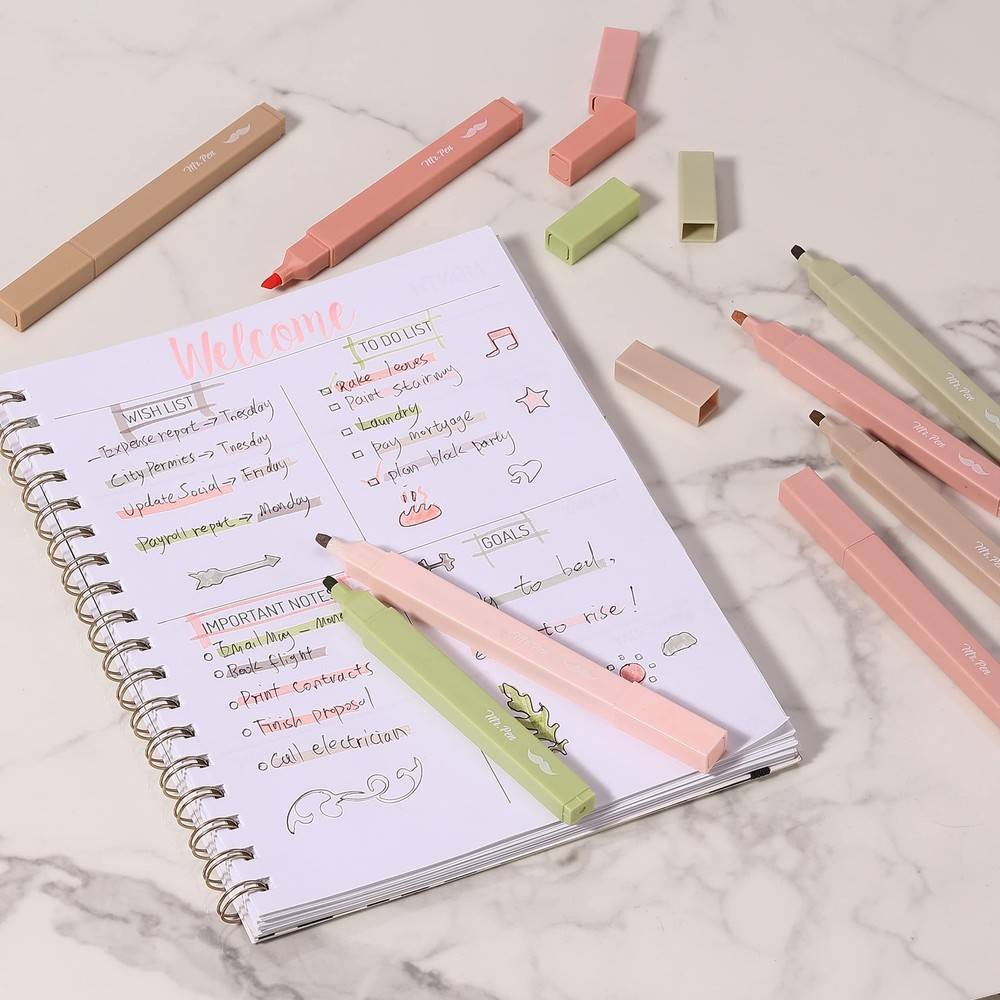 Welcome
WISH LIST
Expense report → Tuesday
City Permies → Tuesday
update Social → Friday
Payroll report → Monday
TO DO LIST
Rake leaves
Paint stairway
Laundry
pay mortgage
plan block party
GOALS
to bed,
to rise!
IMPORTANT NOTES
Book flight
Print contracts
Finish proposal
Call electrician
Mr. Pen
Mr. Pen
Mr. Pen
Mr. Pen
Mr. Pen
Mr. Pen
Mr. Pen
Mr. Pen